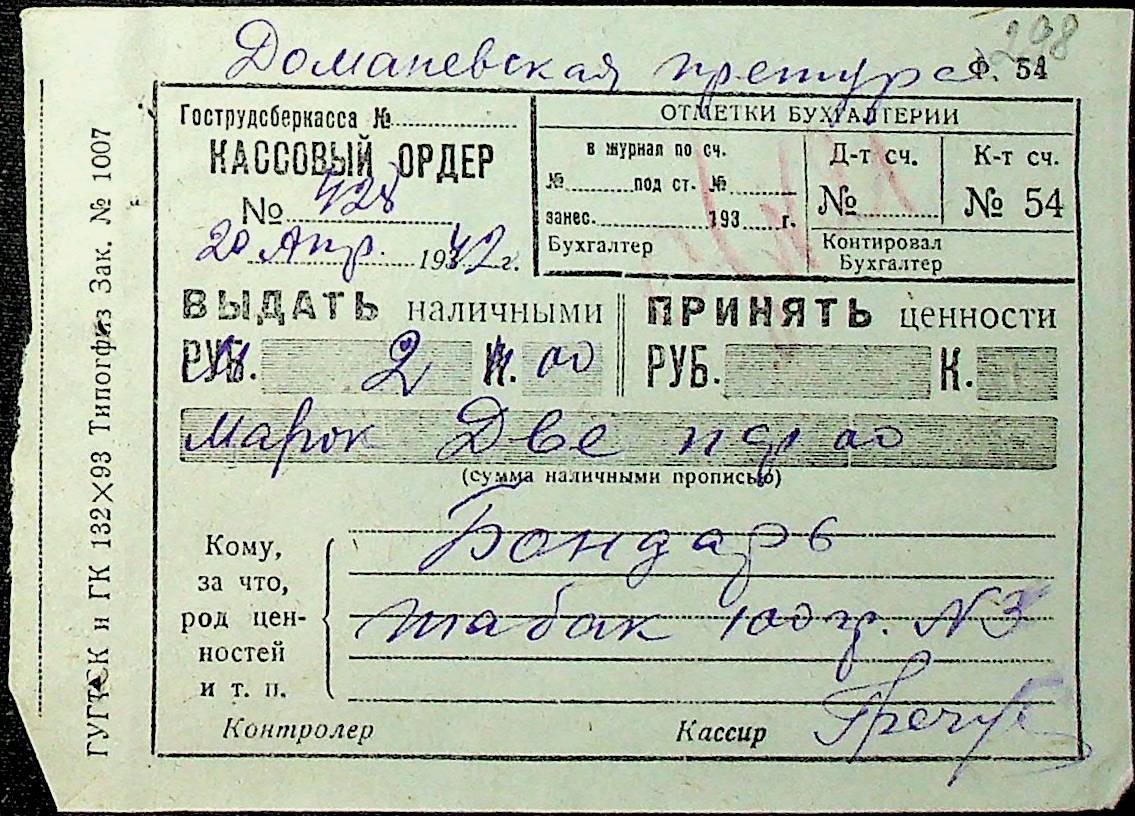 298
Доманевская претура
Ф. 54
Гострудсберкасса №
КАССОВЫЙ ОРДЕР
№ 428
20 Апр. 1942 г.
ОТМЕТКИ БУХГАЛТЕРИИ
в журнал по сч.
№ под ст. №
занес. 193 г.
Бухгалтер
Д-т сч.
№
К-т сч.
№ 54
Контировал
Бухгалтер
ВЫДАТЬ наличными
РУБ. 2 К. 00
ПРИНЯТЬ ценности
РУБ. К.
Марок Две пф 00
(сумма наличными прописью)
Кому,
за что,
род цен-
ностей
и т. п.
Бондарь
табак 100 гр. №3
Контролер
Кассир
ГУГТСК и ГК 132×93 Типогфиз Зак. № 1007